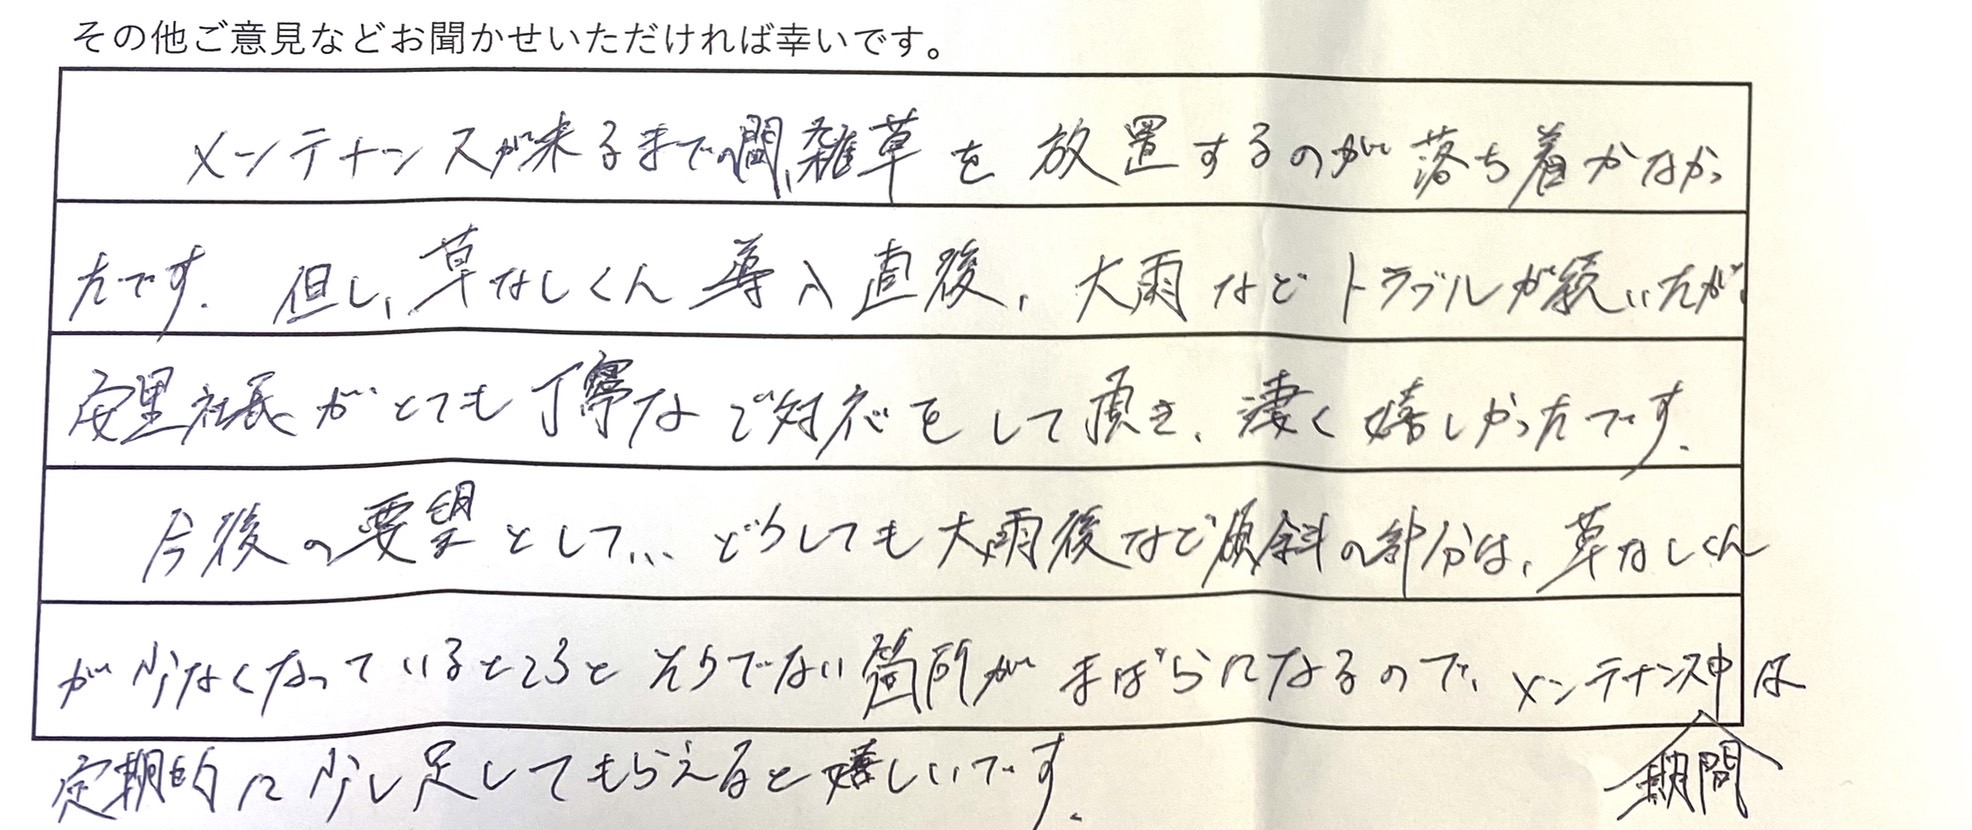 その他ご意見などお聞かせいただければ幸いです。
メンテナンスが来るまでの間、雑草を放置するのが落ち着かなかっ
たです。但し、草なしくん導入直後、大雨などトラブルが続いたが、
安里社長がとても丁寧なご対応をして頂き、凄く嬉しかったです。
今後の要望として、、、どうしても大雨後など傾斜の部分は、草なしくん
が少なくなっているところとそうでない箇所がまばらになるので、メンテナンス中は
期間
定期的に少し足してもらえると嬉しいです。